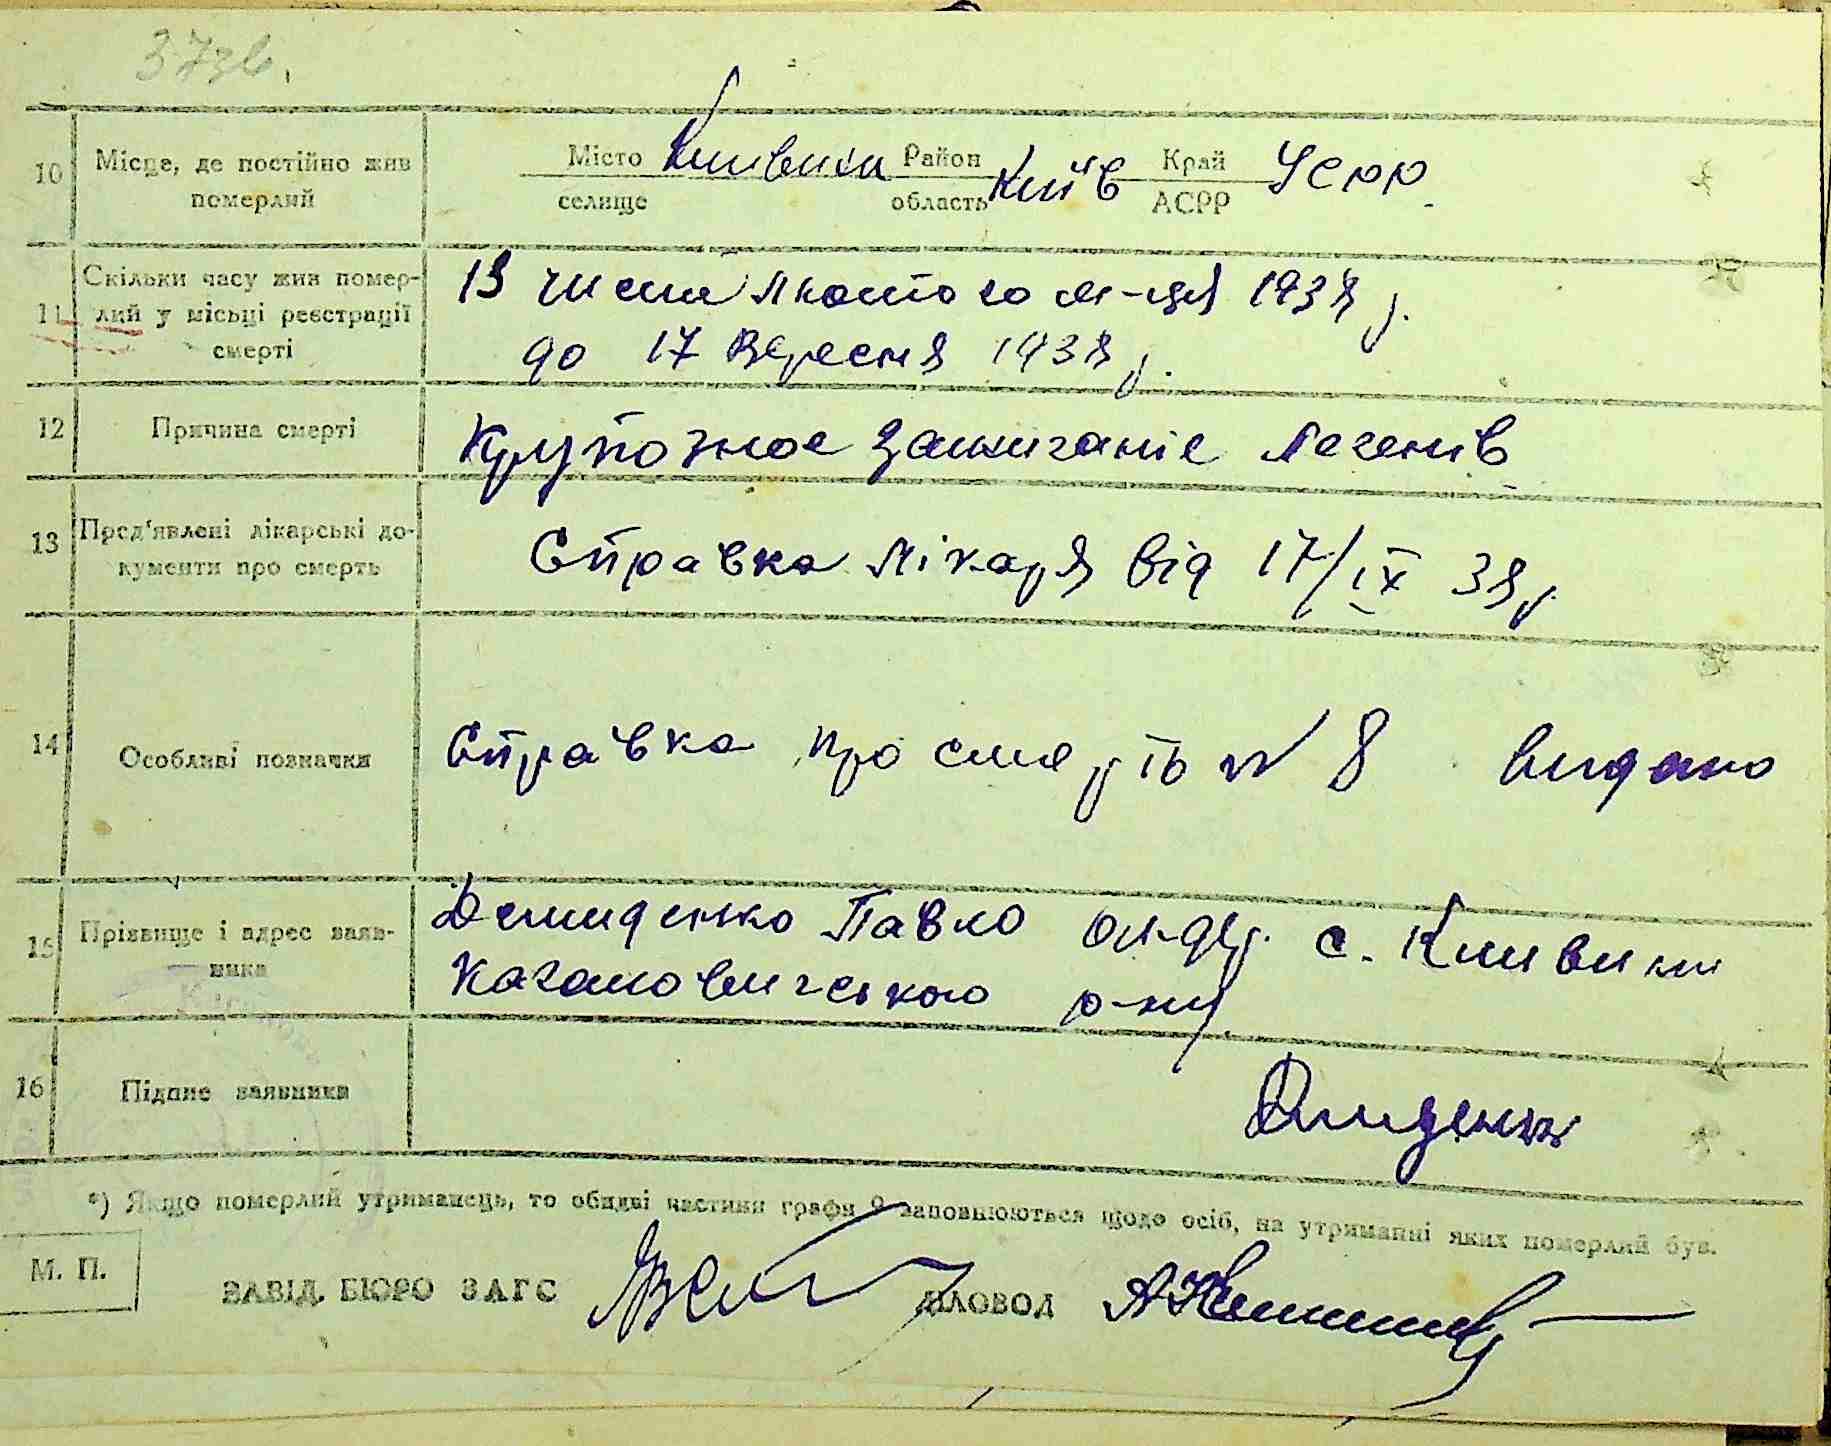 373в.
10 Місце, де постійно жив померлий
Місто Кливини Район Київ Край УСРР
селище область АСРР
11 Скільки часу жив помер-
лий у місьці реєстрації
смерті
13 числа лютого м-ця 1938 р.
до 17 вересня 1938 р.
12 Причина смерті
Крупозное запигание легенів
13 Пред'явлені лікарські до-
кументи про смерть
Справка лікаря від 17/IX 38 р
14 Особливі позначки
Справка про смерть № 8 видано
15 Прізвище і адрес заяв-
ника
Демиденко Павло с. Кливини
Кагановичського р-ну
16 Підпис заявника
*) Якщо померлий утриманець, то обидві частини графи 9 заповнюються щодо осіб, на утриманні яких померлий був.
М. П.
ЗАВІД. БЮРО ЗАГС ДІЛОВОД